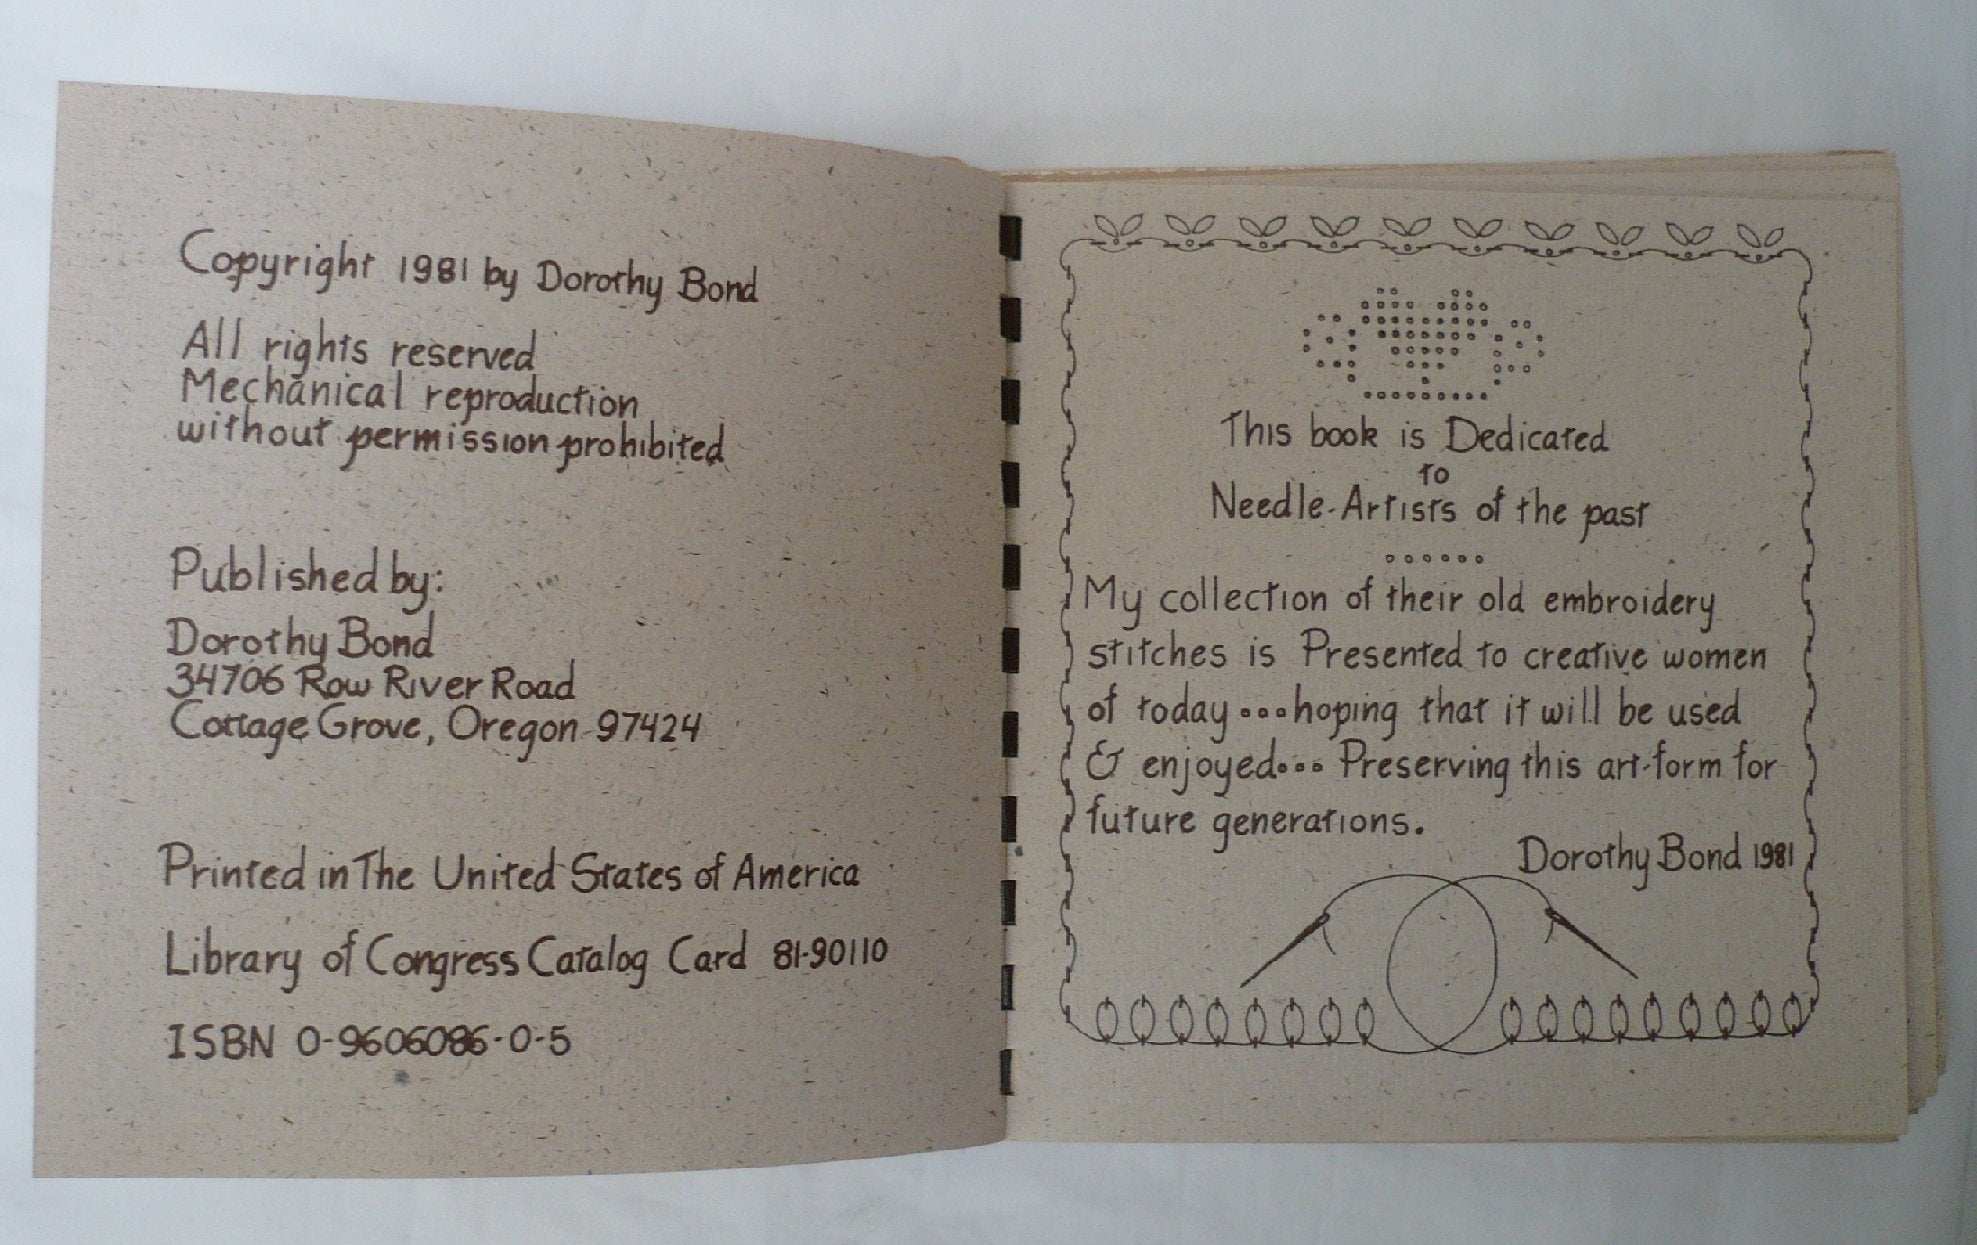 Copyright 1981 by Dorothy Bond
All rights reserved
Mechanical reproduction
without permission prohibited
Published by:
Dorothy Bond
34706 Row River Road
Cottage Grove, Oregon 97424
Printed in The United States of America
Library of Congress Catalog Card 81-90110
ISBN 0-9606086-0-5
This book is Dedicated
to
Needle-Artists of the past
My collection of their old embroidery
stitches is Presented to creative women
of today...hoping that it will be used
& enjoyed... Preserving this art-form for
future generations.
Dorothy Bond 1981